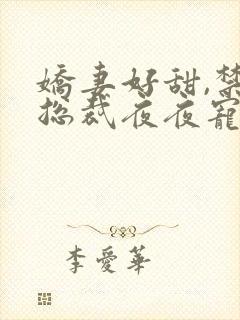 嬌妻好甜,禁
總裁夜夜寵
李愛華